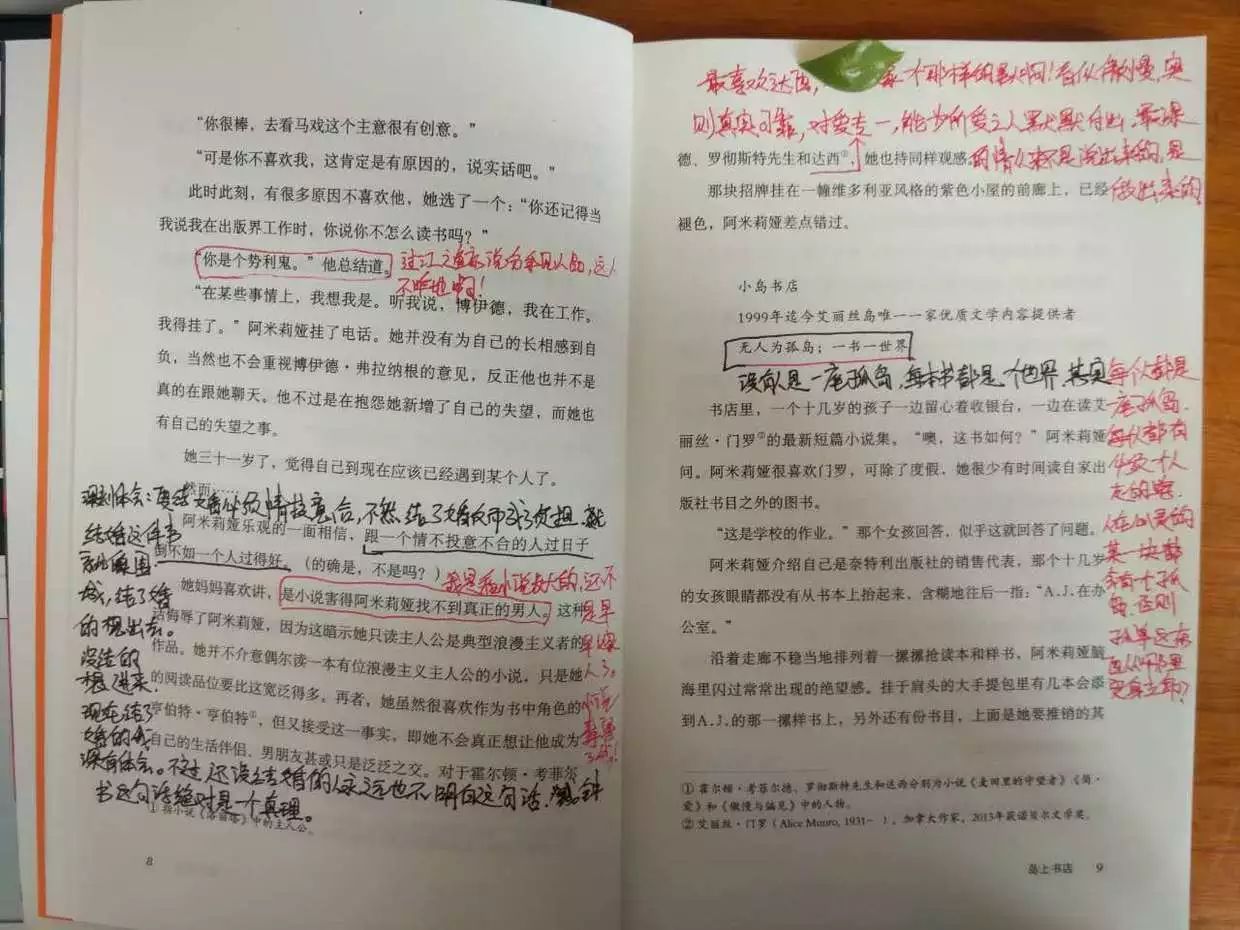 “你很棒，去看马戏这个主意很有创意。”
“可是你不喜欢我，这肯定是有原因的，说实话吧。”
此时此刻，有很多原因不喜欢他，她选了一个：“你还记得当
我说我在出版界工作时，你说你不怎么读书吗？”
“你是个势利鬼。”他总结道。
“在某些事情上，我想我是。听我说，博伊德，我在工作。
我得挂了。”阿米莉娅挂了电话。她并没有为自己的长相感到自
负，当然也不会重视博伊德·弗拉纳根的意见，反正他也并不是
真的在跟她聊天。他不过是在抱怨她新增了自己的失望，而她也
有自己的失望之事。
她三十一岁了，觉得自己到现在应该已经遇到某个人了。
然而……
深刻体会：要结婚必须情投意合，不然结了婚反而
结婚这件事
就像围
城，结了婚
的想出去。
没结的
想进来。
现在结了
婚的我
深有体会。不过还没结婚的人永远也不明白这句话，
书这句话绝对是一个真理。
阿米莉娅乐观的一面相信，跟一个情不投意不合的人过日子
倒不如一个人过得好。（的确是，不是吗？）
她妈妈喜欢讲，是小说害得阿米莉娅找不到真正的男人。这种
话侮辱了阿米莉娅，因为这暗示她只读主人公是典型浪漫主义者的
作品。她并不介意偶尔读一本有位浪漫主义主人公的小说，只是她
的阅读品位要比这宽泛得多。再者，她虽然很喜欢作为书中角色的
亨伯特·亨伯特①，但又接受这一事实，即她不会真正想让他成为
自己的生活伴侣、男朋友甚或只是泛泛之交。对于霍尔顿·考菲尔
① 指小说《洛丽塔》中的主人公。
8
最喜欢达西，
则真实可靠，对爱专一，能为所爱之人默默付出
德、罗彻斯特先生和达西①，她也持同样观感。
的情从来不是说出来的，是
做出来的
那块招牌挂在一幢维多利亚风格的紫色小屋的前廊上，已经
褪色，阿米莉娅差点错过。
小岛书店
1999年迄今艾丽丝岛唯一一家优质文学内容提供者
无人为孤岛；一书一世界
没有人是一座孤岛，每本书都是一个世界，其实
每个人都是
一座孤岛。
每个人都有
走的路。
人在心灵的
某一块都
有一个孤
岛，否则
书店里，一个十几岁的孩子一边留心着收银台，一边在读艾
丽丝·门罗②的最新短篇小说集。“噢，这书如何？”阿米莉娅
问。阿米莉娅很喜欢门罗，可除了度假，她很少有时间读自家出
版社书目之外的图书。
“这是学校的作业。”那个女孩回答，似乎这就回答了问题。
阿米莉娅介绍自己是奈特利出版社的销售代表，那个十几岁
的女孩眼睛都没有从书本上抬起来，含糊地往后一指：“A.J.在办
公室。”
沿着走廊不稳当地排列着一摞摞抢读本和样书，阿米莉娅脑
海里闪过常常出现的绝望感。挂于肩头的大手提包里有几本会添
到A.J.的那一摞样书上，另外还有份书目，上面是她要推销的其
① 霍尔顿·考菲尔德、罗彻斯特先生和达西分别为小说《麦田里的守望者》《简·
爱》和《傲慢与偏见》中的人物。
② 艾丽丝·门罗（Alice Munro, 1931— ），加拿大作家，2013年获诺贝尔文学奖。
岛上书店 9